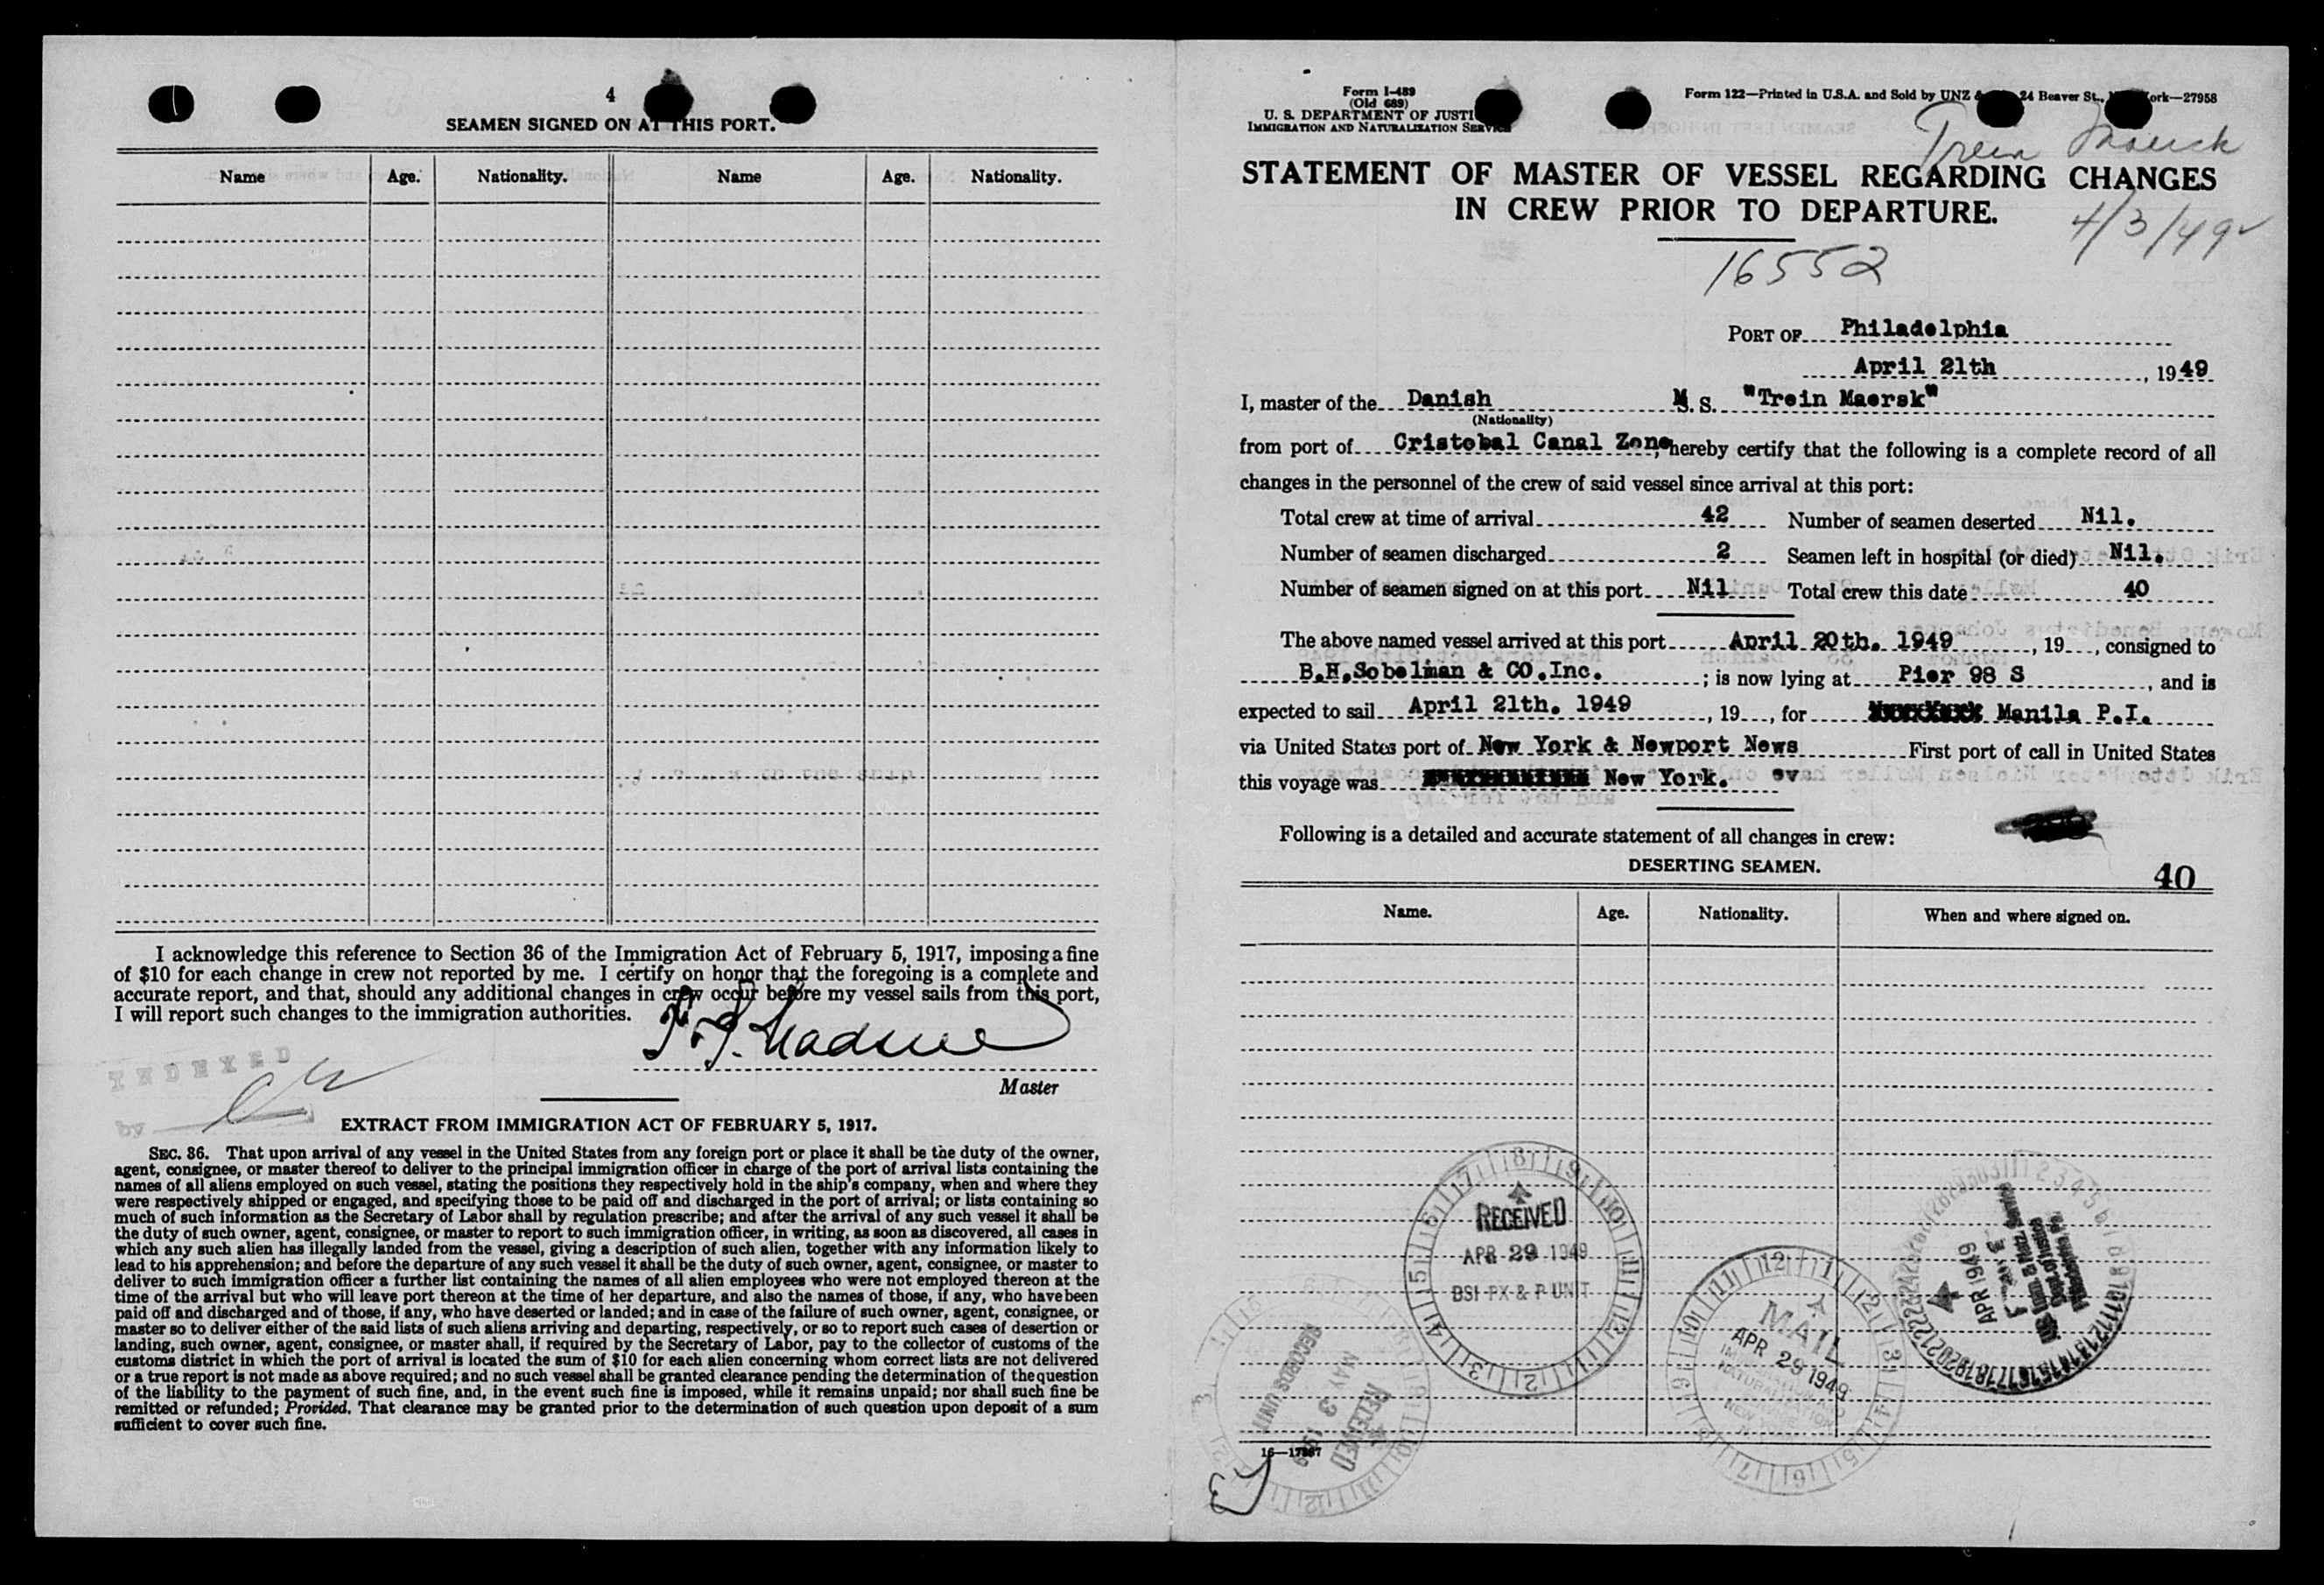 4
SEAMEN SIGNED ON AT THIS PORT.
Name Age. Nationality. Name Age. Nationality.
I acknowledge this reference to Section 36 of the Immigration Act of February 5, 1917, imposing a fine
of $10 for each change in crew not reported by me. I certify on honor that the foregoing is a complete and
accurate report, and that, should any additional changes in crew occur before my vessel sails from this port,
I will report such changes to the immigration authorities.
Master
INDEXED
by
EXTRACT FROM IMMIGRATION ACT OF FEBRUARY 5, 1917.
SEC. 36. That upon arrival of any vessel in the United States from any foreign port or place it shall be the duty of the owner,
agent, consignee, or master thereof to deliver to the principal immigration officer in charge of the port of arrival lists containing the
names of all aliens employed on such vessel, stating the positions they respectively hold in the ship's company, when and where they
were respectively shipped or engaged, and specifying those to be paid off and discharged in the port of arrival; or lists containing so
much of such information as the Secretary of Labor shall by regulation prescribe; and after the arrival of any such vessel it shall be
the duty of such owner, agent, consignee, or master to report to such immigration officer, in writing, as soon as discovered, all cases in
which any such alien has illegally landed from the vessel, giving a description of such alien, together with any information likely to
lead to his apprehension; and before the departure of any such vessel it shall be the duty of such owner, agent, consignee, or master to
deliver to such immigration officer a further list containing the names of all alien employees who were not employed thereon at the
time of the arrival but who will leave port thereon at the time of her departure, and also the names of those, if any, who have been
paid off and discharged and of those, if any, who have deserted or landed; and in case of the failure of such owner, agent, consignee, or
master so to deliver either of the said lists of such aliens arriving and departing, respectively, or so to report such cases of desertion or
landing, such owner, agent, consignee, or master shall, if required by the Secretary of Labor, pay to the collector of customs of the
customs district in which the port of arrival is located the sum of $10 for each alien concerning whom correct lists are not delivered
or a true report is not made as above required; and no such vessel shall be granted clearance pending the determination of the question
of the liability to the payment of such fine, and, in the event such fine is imposed, while it remains unpaid; nor shall such fine be
remitted or refunded; Provided, That clearance may be granted prior to the determination of such question upon deposit of a sum
sufficient to cover such fine.
Form I-489
(Old 689)
U. S. DEPARTMENT OF JUSTI
IMMIGRATION AND NATURALIZATION SERVICE
Form 122—Printed in U.S.A. and Sold by UNZ & 24 Beaver St., ork—27958
Trein
STATEMENT OF MASTER OF VESSEL REGARDING CHANGES
IN CREW PRIOR TO DEPARTURE.
4/3/49
16552
PORT OF Philadelphia
April 21th, 1949
I, master of the Danish M.S. "Trein Maersk"
(Nationality)
from port of Cristobal Canal Zone, hereby certify that the following is a complete record of all
changes in the personnel of the crew of said vessel since arrival at this port:
Total crew at time of arrival 42 Number of seamen deserted Nil.
Number of seamen discharged 2 Seamen left in hospital (or died) Nil.
Number of seamen signed on at this port Nil Total crew this date 40
The above named vessel arrived at this port April 20th. 1949, 19, consigned to
B.H.Sobelman & CO.Inc.; is now lying at Pier 98 S, and is
expected to sail April 21th. 1949, 19, for Manila P.I.
via United States port of New York & Newport News First port of call in United States
this voyage was New York. ev
Following is a detailed and accurate statement of all changes in crew:
DESERTING SEAMEN.
40
Name. Age. Nationality. When and where signed on.
RECEIVED
APR 29 1949
BSI PX & P UNIT
MAIL
APR 29 1949
IMMIGRATION AND
NATURALIZATION
NEW YORK
APR 1949
RECEIVED
MAY 3 1949
RECORDS UNIT